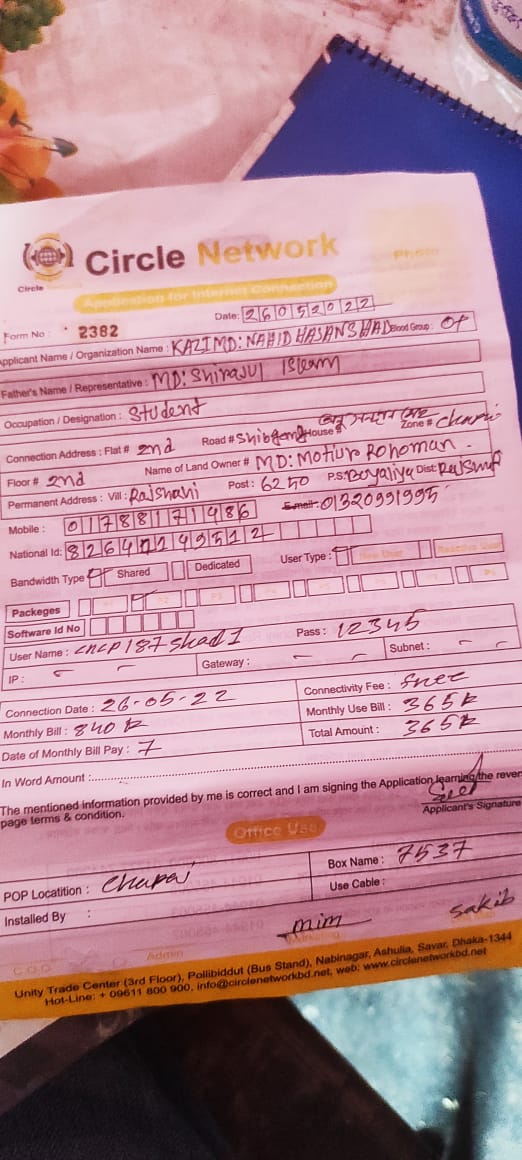 Circle
Circle Network
Photo
Application for Internet Connection
Date: 26052022
Form No : 2382
Applicant Name / Organization Name : KAZI MD: NAHID HASAN SHAD Blood Group : O+
Father's Name / Representative : MD: Shirajul Islam
Occupation / Designation : Student
Connection Address : Flat # 2nd Road # Shibgonj House # Zone # Chapai
Floor # 2nd Name of Land Owner # MD: Motiur Rohoman.
Permanent Address : Vill: Rajshahi Post : 6250 P.S: Boyaliya Dist:
Mobile : 01788171486 E-mail: 01320991995
National Id: 8264219512
Bandwidth Type Shared Dedicated User Type : New User Reactive User
Packeges P1 P2 P3 P4 P5 P6 P7 P8
Software Id No
User Name : cncp187shad1 Pass : 12345
IP : - - Gateway : - - Subnet : - -
Connection Date : 26-05-22 Connectivity Fee : free
Monthly Bill : 840 tk Monthly Use Bill : 365tk
Date of Monthly Bill Pay : 7 Total Amount : 365tk
In Word Amount :
The mentioned information provided by me is correct and I am signing the Application learning the rever
page terms & condition.
Applicant's Signature
Office Use
POP Locatition : Chapai Box Name : 7537
Installed By : Use Cable :
mim sakib
C.O.O Admin Marketing
Unity Trade Center (3rd Floor), Pollibiddut (Bus Stand), Nabinagar, Ashulia, Savar, Dhaka-1344
Hot-Line: + 09611 800 900, info@circlenetworkbd.net, web: www.circlenetworkbd.net